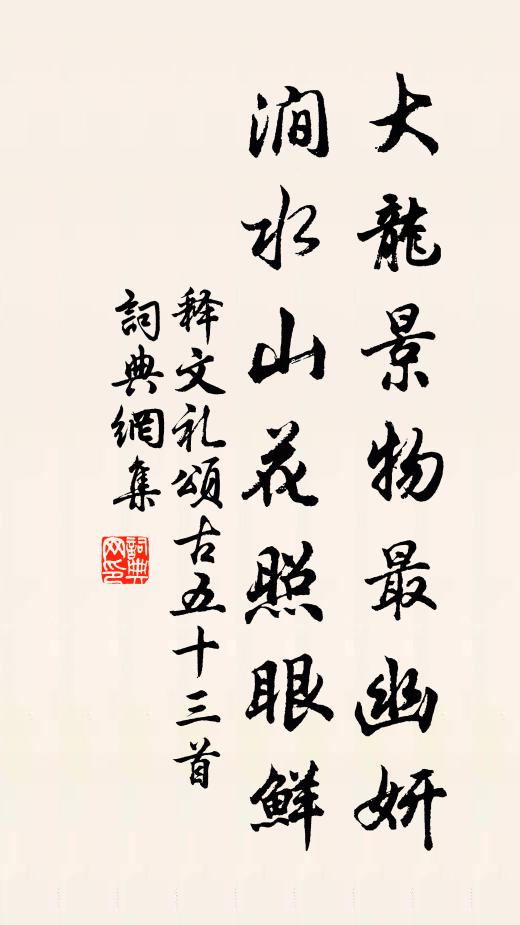 大龍景物最幽妍
澗水山花照眼鮮
释文礼頌古五十三首
詞典網集
詞典網印